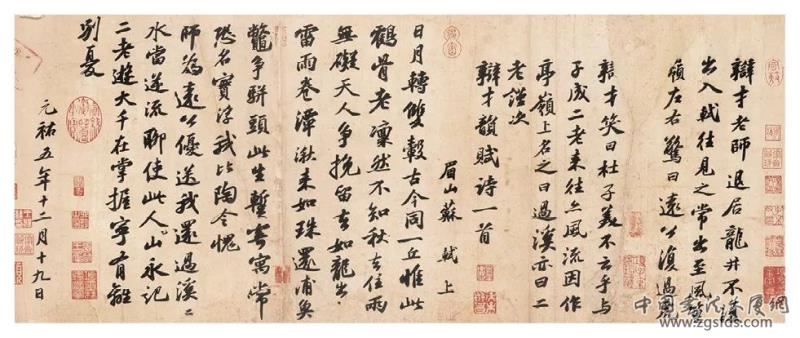 辯才老師退居龍井不復
出入軾往見之常出至風篁
嶺左右驚曰遠公復過虎
辯才笑曰杜子美不云乎與
子成二老來往亦風流因作
亭嶺上名之曰過溪亦曰二
老謹次
辯才韻賦詩一首
眉山蘇軾上
日月轉雙轂古今同一丘惟此
鶴骨老凜然不知秋去住兩
無礙天人爭挽留去如龍出
雷雨卷潭湫來如珠還浦魚
鼈爭駢頭此生暫寄寓常
恐名實浮我比陶令愧
師為遠公優送我還過溪溪
水當逆流聊使此人山永記
二老遊大千在掌握寧有離
別憂
元祐五年十二月十九日
www.zgsfds.com